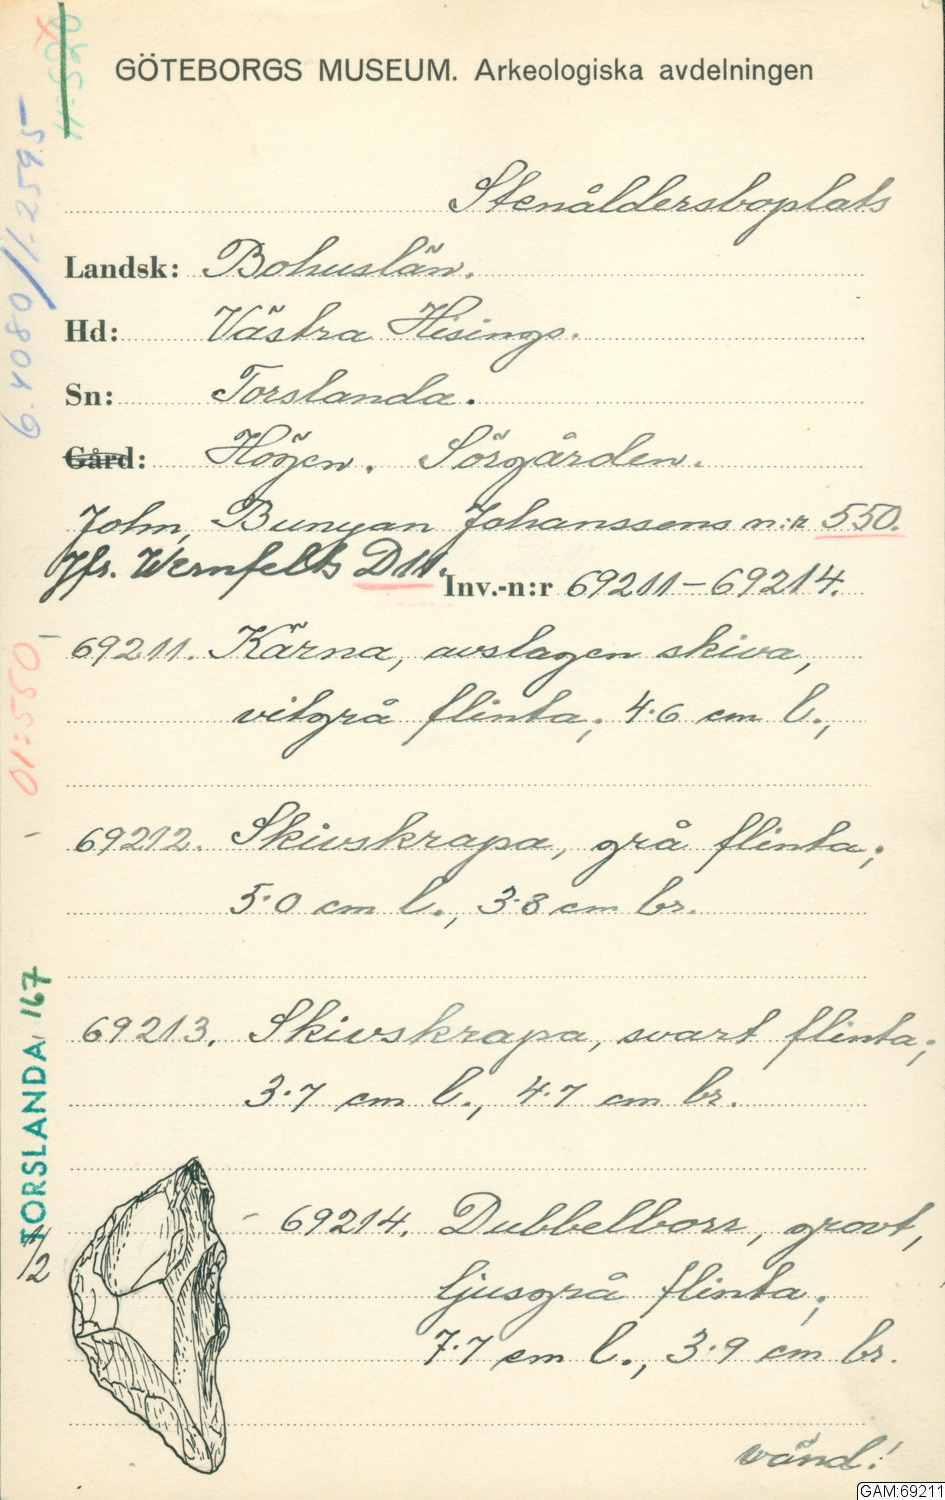 GÖTEBORGS MUSEUM. Arkeologiska avdelningen
Stenåldersboplats
Landsk: Bohuslän.
Hd: Västra Hisings.
Sn: Torslanda.
Gård: Högen. Sörgården.
John, Bunyan Johanssons n:r 550.
Jfr. Wernfelts D 11.
Inv.-n:r 69211-69214.
69211. Kärna, avslagen skiva,
vitgrå flinta; 4.6 cm l.,
69212. Skivskrapa, grå flinta;
5.0 cm l., 3.8 cm br.
69213. Skivskrapa, svart flinta;
3.7 cm l., 4.7 cm br.
69214. Dubbelborr, grovt,
ljusgrå flinta;
7.7 cm l., 3.9 cm br.
vänd!
1/2
TORSLANDA 167
01:550
6.4080/1.2595
11-520
GAM:69211